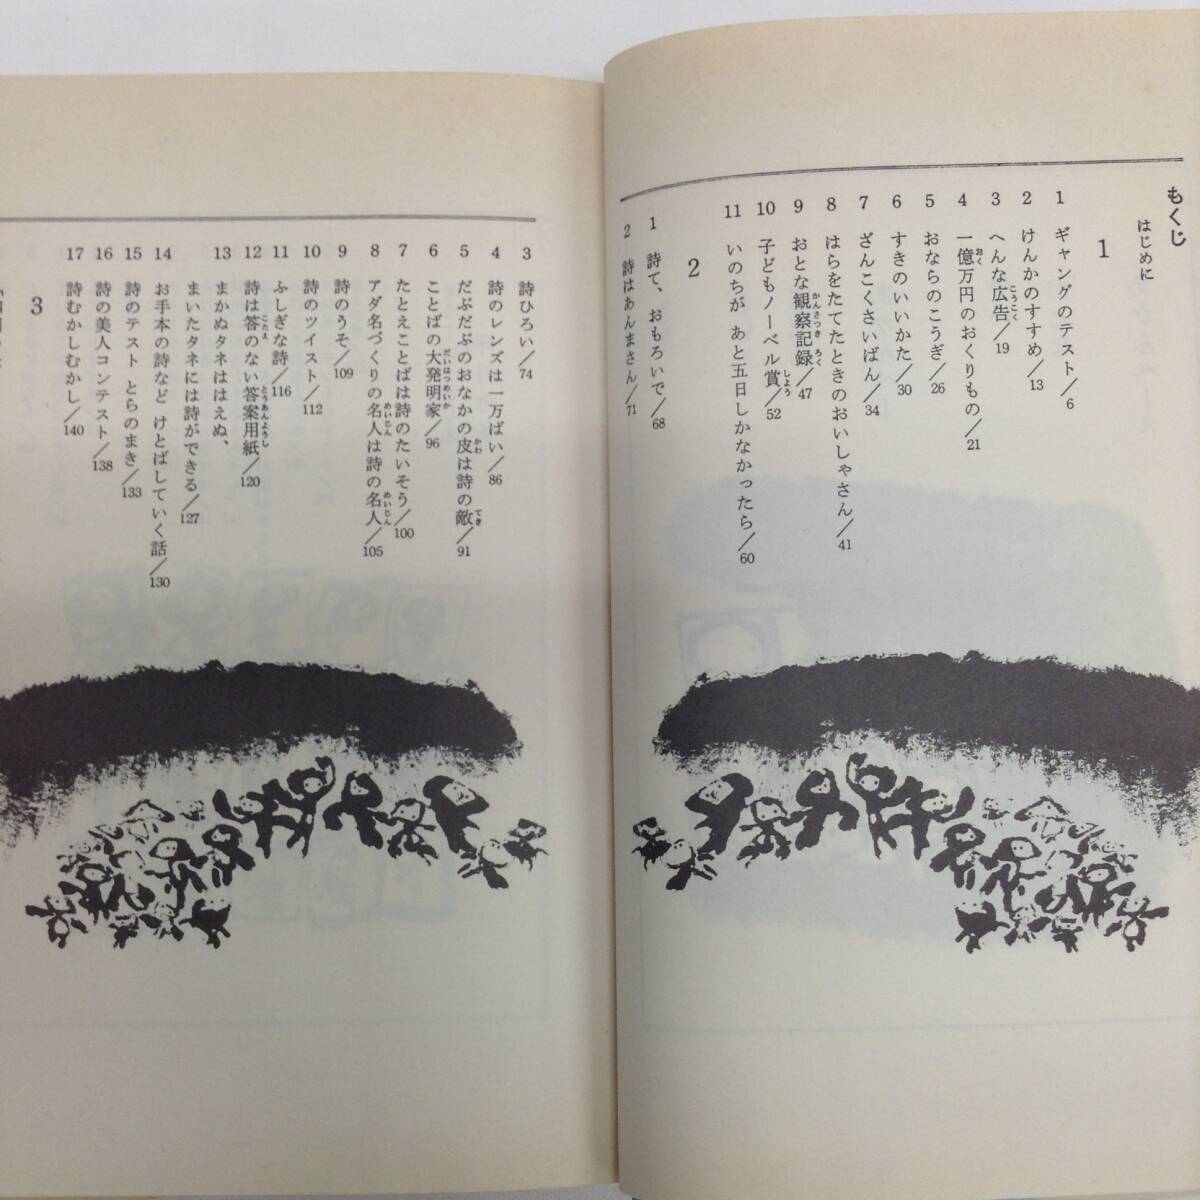 もくじ
はじめに
1
1 ギャングのテスト/6
2 けんかのすすめ/13
3 へんな広告/19
4 一億万円のおくりもの/21
5 おならのこうぎ/26
6 すきのいいかた/30
7 ざんこくさいばん/34
8 はらをたてたときのおいしゃさん/41
9 おとな観察記録/47
10 子どもノーベル賞/52
11 いのちが あと五日しかなかったら/60
2
1 詩て、おもろいで/68
2 詩はあんまさん/71
3 詩ひろい/74
4 詩のレンズは一万ばい/86
5 だぶだぶのおなかの皮は詩の敵/91
6 ことばの大発明家/96
7 たとえことばは詩のたいそう/100
8 アダ名づくりの名人は詩の名人/105
9 詩のうそ/109
10 詩のツイスト/112
11 ふしぎな詩/116
12 詩は答のない答案用紙/120
13 まかぬタネははえぬ、
まいたタネには詩ができる/127
14 お手本の詩など けとばしていく話/130
15 詩のテスト とらのまき/133
16 詩の美人コンテスト/138
17 詩むかしむかし/140
3